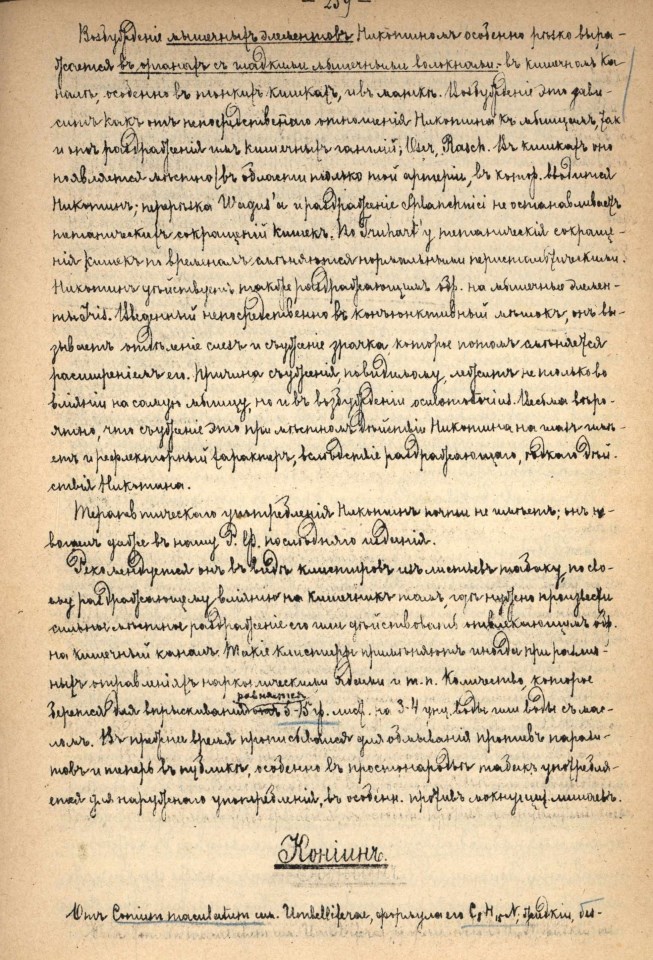 — 239 —
Возбужденіе мышечныхъ элементовъ Никотиномъ особенно рѣзко выра-
жается въ органахъ съ гладкими мышечными волокнами: въ кишечномъ ка-
налѣ, особенно въ тонкихъ кишкахъ, и въ маткѣ. Возбужденіе это зави-
ситъ какъ отъ непосредственнаго отношенія Никотина къ мышцамъ, такъ
и отъ раздраженія имъ кишечныхъ ганглій; Oser, Rasch. Въ кишкахъ оно
появляется мѣстно въ области только той артеріи, въ котор. вводится
Никотинъ; перерѣзка Vagus'а и раздраженіе Splanchnici не останавливаетъ
тетаническихъ сокращеній кишекъ. По Truhart'у тетаническія сокраще-
нія кишекъ по временамъ смѣняются нормальными перистальтическими.
Никотинъ дѣйствуетъ также раздражающимъ обр. на мышечные элемен-
ты Iris. Введенный непосредственно въ конъюнктивный мѣшокъ, онъ вы-
зываетъ отдѣленіе слезъ и съуженіе зрачка, которое потомъ смѣняется
расширеніемъ его. Причина съуженія повидимому, лежитъ не только во
вліяніи на самую мышцу, но и въ возбужденіи oculomotorius. Весьма вѣро-
ятно, что съуженіе это при мѣстномъ дѣйствіи Никотина на глазъ имѣ-
етъ и рефлекторный характеръ, вслѣдствіе раздражающаго, ѣдкаго дѣй-
ствія Никотина.
Терапевтическаго употребленія Никотинъ почти не имѣетъ; онъ не-
вошелъ даже въ нашу Р. Ф. послѣдняго изданія.
Рекомендуется онъ въ видѣ клистировъ изъ листьевъ табаку, по сво-
ему раздражающему вліянію на кишечникъ тамъ, гдѣ нужно произвести
сильное мѣстное раздраженіе его или дѣйствовать отвлекающимъ обр.
на кишечный каналъ. Такіе клистиры примѣняютъ иногда при различ-
ныхъ отравленіяхъ наркотическими ядами и т.п. Количество, которое
равняется
берется для впрыскиваній 5-15 гр. лист. на 3-4 унц. воды или воды съ мас-
ломъ. Въ прежнее время прописывался для обмыванія противъ парази-
товъ и теперь въ публикѣ, особенно въ простонародьи табакъ употребля-
ется для наружнаго употребленія, въ особенн. противъ мокнущихъ лишаевъ.
Коніинъ.
Отъ Conium maculatum сем. Umbelliferae, формула его C₈H₁₅N, жидкій, без-